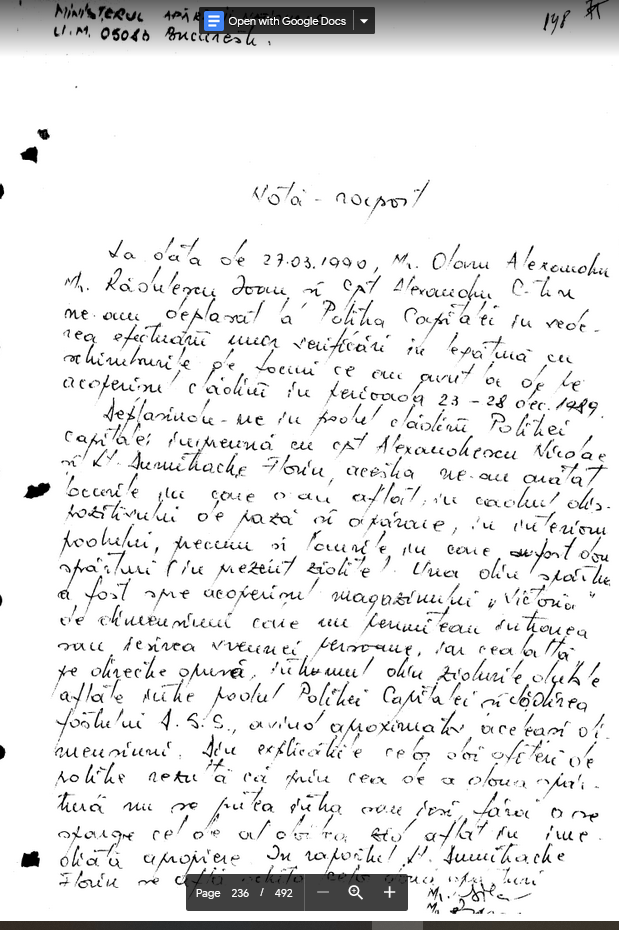 MINISTERUL
U.M. 05080 București.
Open with Google Docs
198
Notă - raport
La data de 27.03.1990, Mr. Olaru Alexandru
Mr. Rădulescu Ioan și cpt Alexandru
ne-am deplasat la Poliția Capitalei în vede-
rea efectuării unor verificări în legătură cu
schimburile de focuri ce au avut loc de pe
acoperișul clădirii în perioada 23 - 28 dec. 1989.
Deplasîndu-ne în podul clădirii Poliției
Capitalei împreună cu cpt Alexandrescu Nicolae
și Lt. Dumitrache Florin, aceștia ne-au arătat
locurile în care s-au aflat, în cadrul dis-
pozitivului de pază și apărare, în interiorul
podului, precum și locurile în care au fost
spărturi (în prezent zidite). Una din spărturi
a fost spre acoperișul magazinului „Victoria"
de dimensiuni care nu permiteau intrarea
sau ieșirea vreunei persoane, iar cealaltă
pe direcție opusă, din zidurile duble
aflate între podul Poliției Capitalei și clădirea
fostului A.S.S., avînd aproximativ aceleași di-
mensiuni. Din explicațiile celor doi ofițeri de
poliție rezultă că prin cea de a doua spăr-
tură nu se putea intra sau ieși, fără a se
sparge cel de al doilea zid aflat în ime-
diată apropiere. În raportul Lt. Dumitrache
Florin se află schița celor două spărturi
Mr.
Mr.
Page 236 / 492